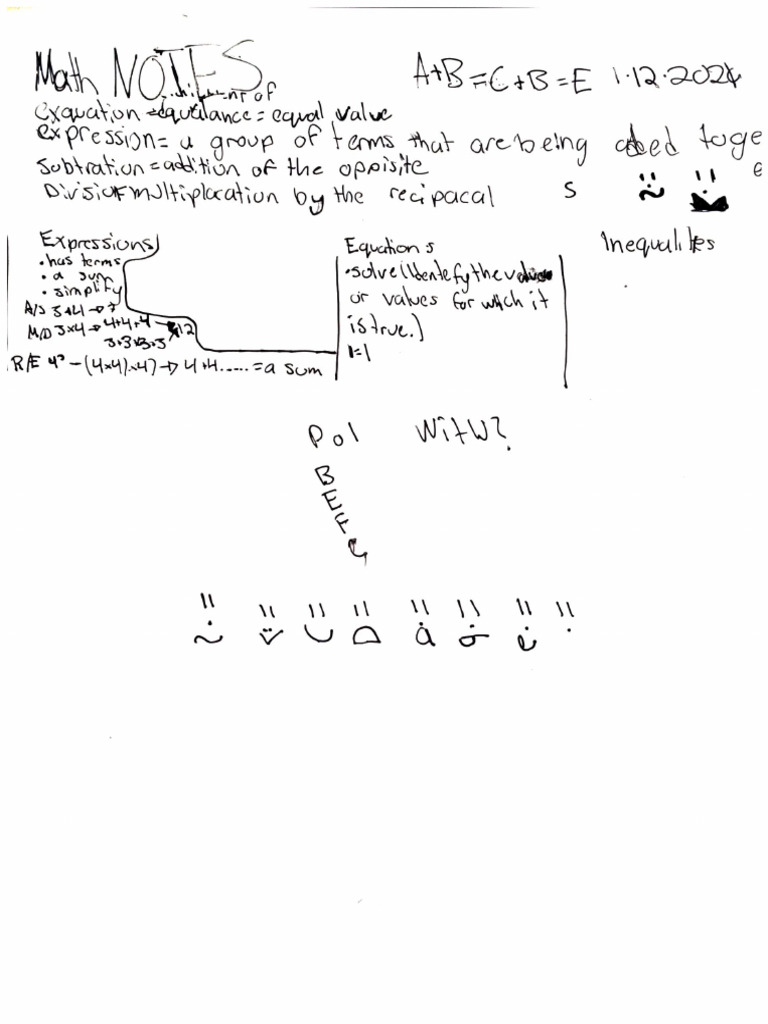 Math NOTES A+B=C+B=E 1·12·2024
exquation = equivalance = equal value
expression = a group of terms that are being added toge
Subtration = addition of the oppisite
Division multiplacation by the recipacal S
Expressions
• has terms
• a sum
• simplify
A/S 3+4 → 7
M/D 3x4 → 4+4+4 → 12
3+3+3+3
R/E 4³ - (4x4)x4) → 4+4..... = a sum
Equations
• solve (Identefy the value
or values for wich it
is true.)
1=1
Inequalites
Pol WitW?
B
E
F